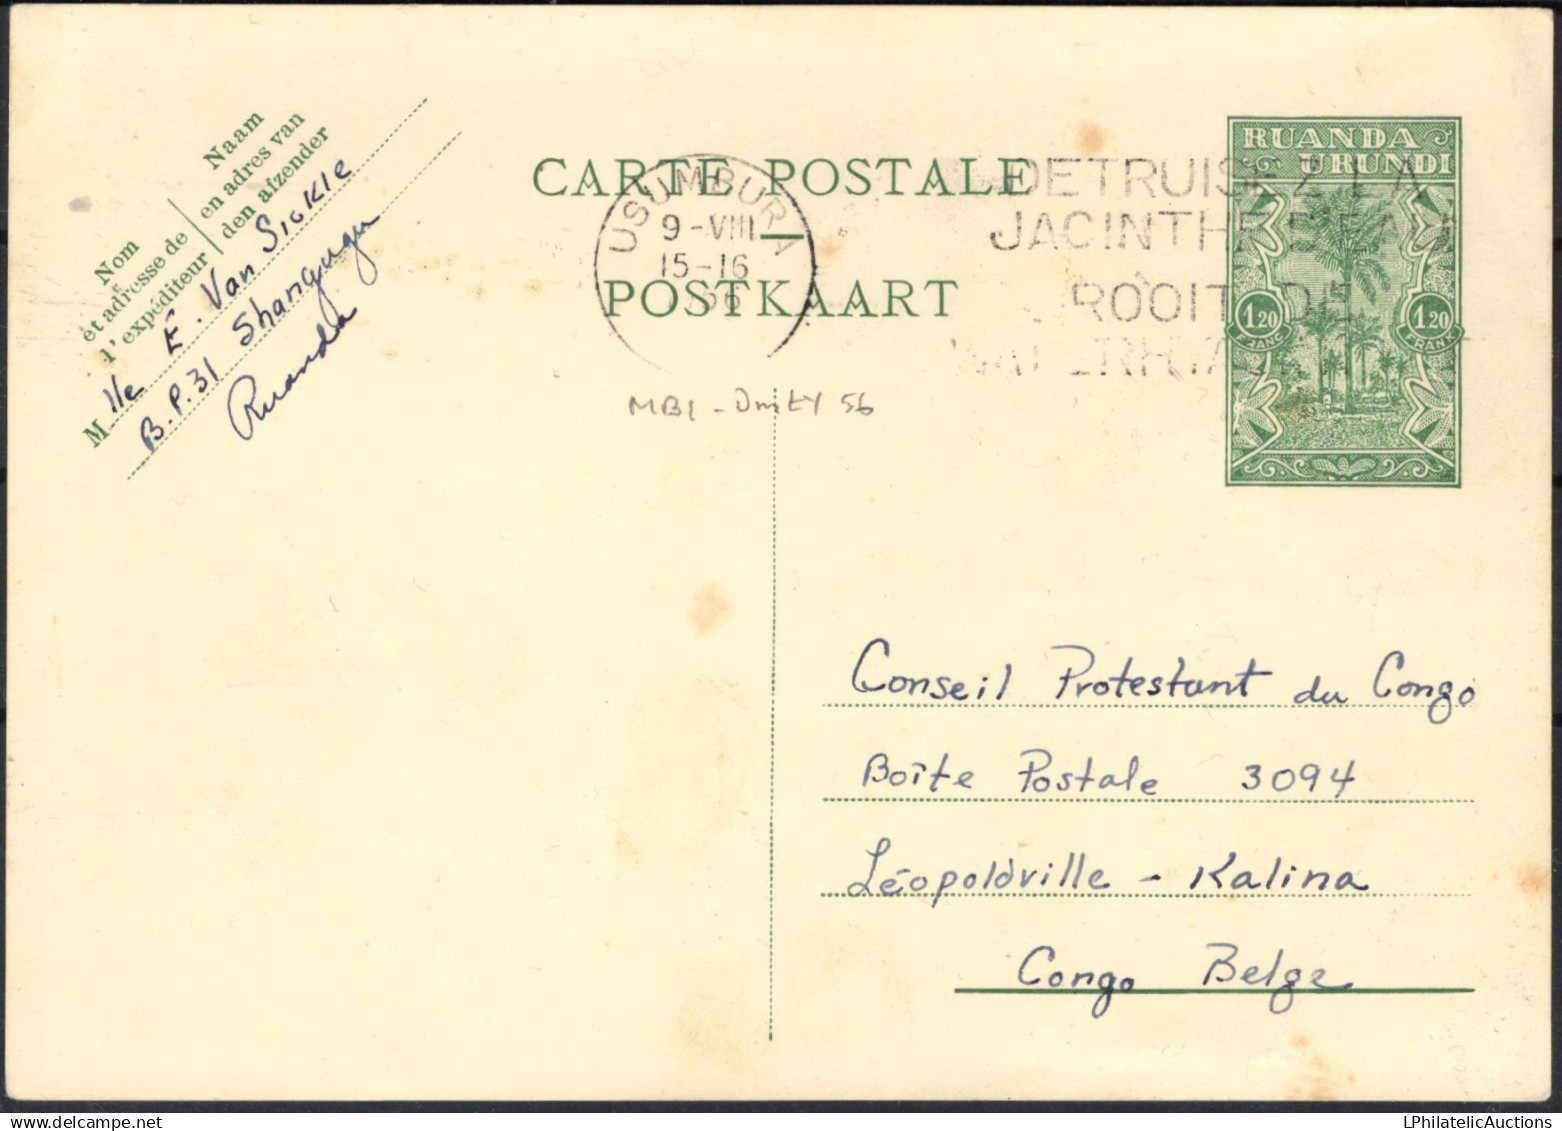 Nom
et adresse de
l'expéditeur
Naam
en adres van
den afzender
M lle É. Van Sickle
B.P. 31 Shangugu
Ruanda
CARTE POSTALE
POSTKAART
USUMBURA
9-VIII
15-16
56
DETRUISEZ LA
JACINTHE D'EAU
ROOIT DE
RUANDA
URUNDI
1.20 1.20
FRANC FRANK
56
Conseil Protestant du Congo
Boîte Postale 3094
Léopoldville - Kalina
Congo Belge
LPhilatelicAuctions